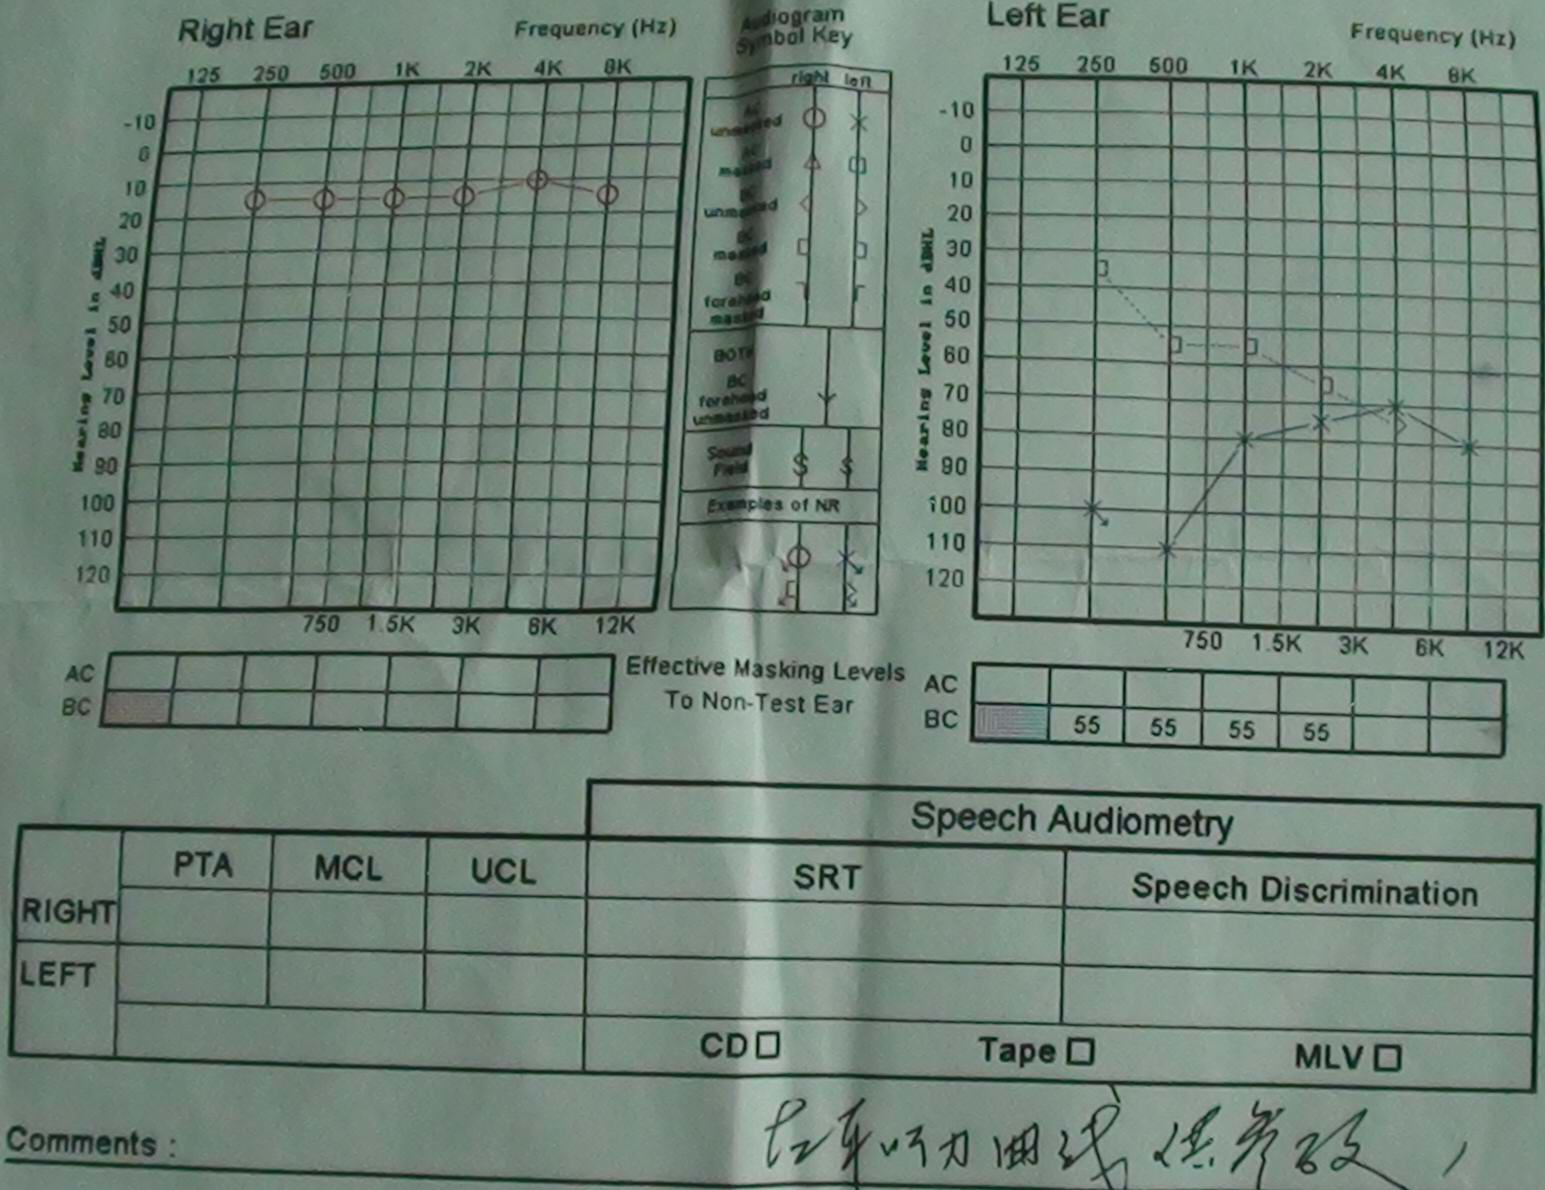 Right Ear
Frequency (Hz)
125 250 500 1K 2K 4K 8K
-10
0
10
20
30
40
50
60
70
80
90
100
110
120
Hearing Level in dBHL
750 1.5K 3K 6K 12K
Audiogram
Symbol Key
right left
AC
unmasked
AC
masked
BC
unmasked
BC
masked
BC
forehead
masked
BOTH
BC
forehead
unmasked
Sound
Field
S S
Examples of NR
Left Ear
Frequency (Hz)
125 250 500 1K 2K 4K 8K
-10
0
10
20
30
40
50
60
70
80
90
100
110
120
Hearing Level in dBHL
750 1.5K 3K 6K 12K
AC
BC
Effective Masking Levels
To Non-Test Ear
AC
BC 55 55 55 55
Speech Audiometry
PTA MCL UCL SRT Speech Discrimination
RIGHT
LEFT
CD Tape MLV
Comments : 左耳听力曲线供参考